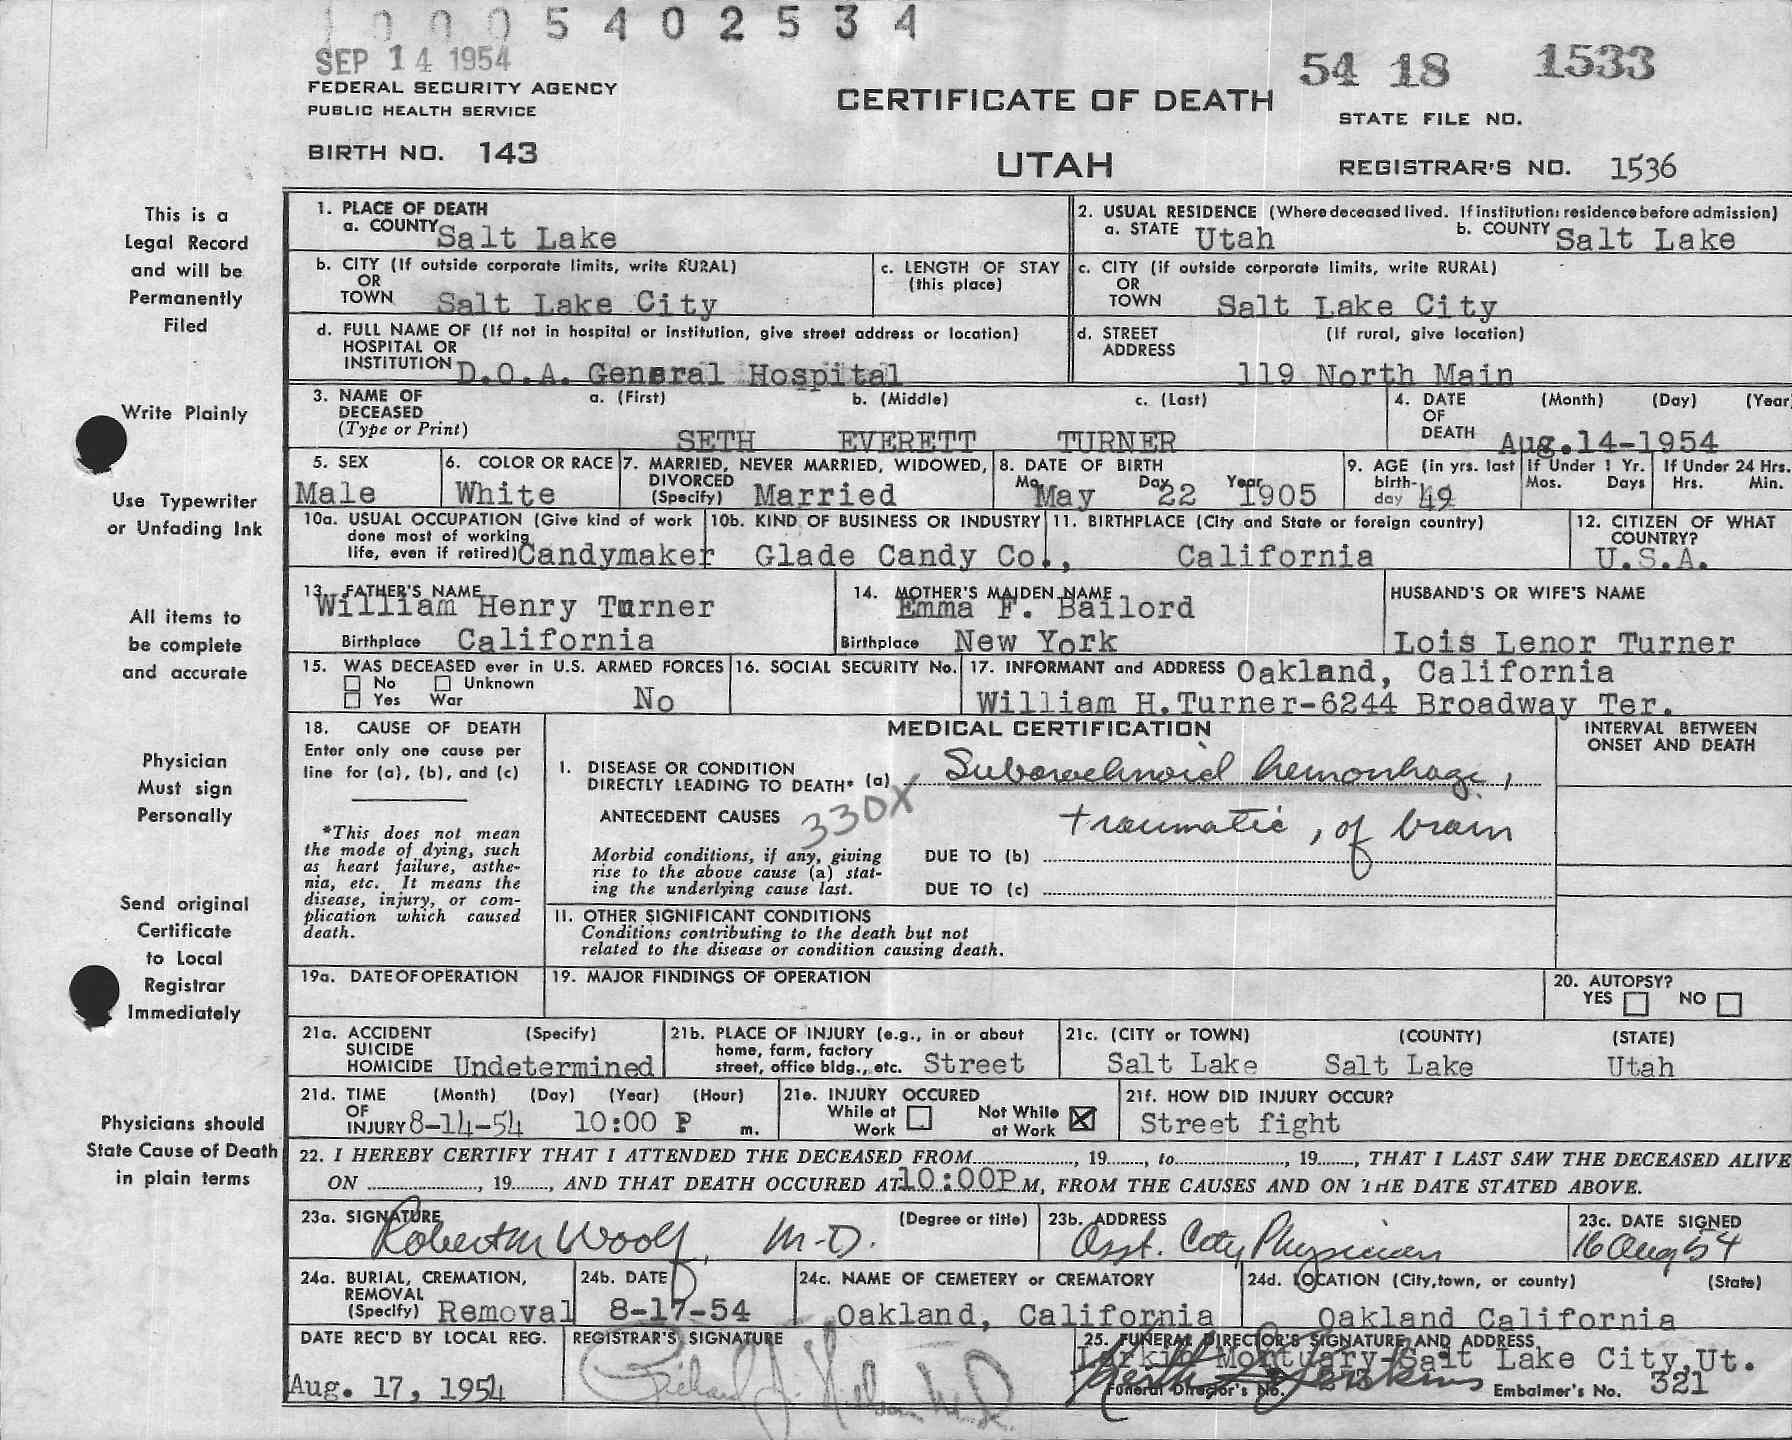 0005402534
SEP 14 1954
54 18 1533
FEDERAL SECURITY AGENCY
PUBLIC HEALTH SERVICE
CERTIFICATE OF DEATH
STATE FILE NO.
BIRTH NO. 143
UTAH
REGISTRAR'S NO. 1536
This is a
Legal Record
and will be
Permanently
Filed
Write Plainly
Use Typewriter
or Unfading Ink
All items to
be complete
and accurate
Physician
Must sign
Personally
Send original
Certificate
to Local
Registrar
Immediately
Physicians should
State Cause of Death
in plain terms
1. PLACE OF DEATH
a. COUNTY Salt Lake
2. USUAL RESIDENCE (Where deceased lived. If institution: residence before admission)
a. STATE Utah b. COUNTY Salt Lake
b. CITY (If outside corporate limits, write RURAL)
OR
TOWN Salt Lake City
c. LENGTH OF STAY
(this place)
c. CITY (if outside corporate limits, write RURAL)
OR
TOWN Salt Lake City
d. FULL NAME OF (If not in hospital or institution, give street address or location)
HOSPITAL OR
INSTITUTION D.O.A. General Hospital
d. STREET (If rural, give location)
ADDRESS
119 North Main
3. NAME OF a. (First) b. (Middle) c. (Last)
DECEASED
(Type or Print) SETH EVERETT TURNER
4. DATE (Month) (Day) (Year)
OF
DEATH Aug.14-1954
5. SEX
Male
6. COLOR OR RACE
White
7. MARRIED, NEVER MARRIED, WIDOWED,
DIVORCED
(Specify) Married
8. DATE OF BIRTH
Mo. May Day 22 Year 1905
9. AGE (in yrs. last
birth-
day 49
If Under 1 Yr.
Mos. Days
If Under 24 Hrs.
Hrs. Min.
10a. USUAL OCCUPATION (Give kind of work
done most of working
life, even if retired) Candymaker
10b. KIND OF BUSINESS OR INDUSTRY
Glade Candy Co.,
11. BIRTHPLACE (City and State or foreign country)
California
12. CITIZEN OF WHAT
COUNTRY?
U.S.A.
13. FATHER'S NAME
William Henry Turner
Birthplace California
14. MOTHER'S MAIDEN NAME
Emma F. Bailord
Birthplace New York
HUSBAND'S OR WIFE'S NAME
Lois Lenor Turner
15. WAS DECEASED ever in U.S. ARMED FORCES
No Unknown
Yes War No
16. SOCIAL SECURITY No.
17. INFORMANT and ADDRESS Oakland, California
William H.Turner-6244 Broadway Ter.
18. CAUSE OF DEATH
Enter only one cause per
line for (a), (b), and (c)
*This does not mean
the mode of dying, such
as heart failure, asthe-
nia, etc. It means the
disease, injury, or com-
plication which caused
death.
MEDICAL CERTIFICATION
INTERVAL BETWEEN
ONSET AND DEATH
I. DISEASE OR CONDITION
DIRECTLY LEADING TO DEATH* (a) Subarachnoid hemorrhage,
ANTECEDENT CAUSES 330X traumatic, of brain
Morbid conditions, if any, giving
rise to the above cause (a) stat-
ing the underlying cause last.
DUE TO (b)
DUE TO (c)
II. OTHER SIGNIFICANT CONDITIONS
Conditions contributing to the death but not
related to the disease or condition causing death.
19a. DATE OF OPERATION
19. MAJOR FINDINGS OF OPERATION
20. AUTOPSY?
YES NO
21a. ACCIDENT (Specify)
SUICIDE
HOMICIDE Undetermined
21b. PLACE OF INJURY (e.g., in or about
home, farm, factory
street, office bldg., etc. Street
21c. (CITY or TOWN) (COUNTY) (STATE)
Salt Lake Salt Lake Utah
21d. TIME (Month) (Day) (Year) (Hour)
OF
INJURY 8-14-54 10:00 P m.
21e. INJURY OCCURED
While at Not While
Work at Work
21f. HOW DID INJURY OCCUR?
Street fight
22. I HEREBY CERTIFY THAT I ATTENDED THE DECEASED FROM , 19 , to , 19 , THAT I LAST SAW THE DECEASED ALIVE
ON , 19 , AND THAT DEATH OCCURED AT 10:00P M, FROM THE CAUSES AND ON THE DATE STATED ABOVE.
23a. SIGNATURE (Degree or title)
Robert M Woolf, M.D.
23b. ADDRESS
Asst. City Physician
23c. DATE SIGNED
16 Aug 54
24a. BURIAL, CREMATION,
REMOVAL
(Specify) Removal
24b. DATE
8-17-54
24c. NAME OF CEMETERY or CREMATORY
Oakland, California
24d. LOCATION (City, town, or county) (State)
Oakland California
DATE REC'D BY LOCAL REG.
Aug. 17, 1954
REGISTRAR'S SIGNATURE
Richard J.
25. FUNERAL DIRECTOR'S SIGNATURE AND ADDRESS
Larkin Mortuary-Salt Lake City, Ut.
Funeral Director's No. Embalmer's No. 321